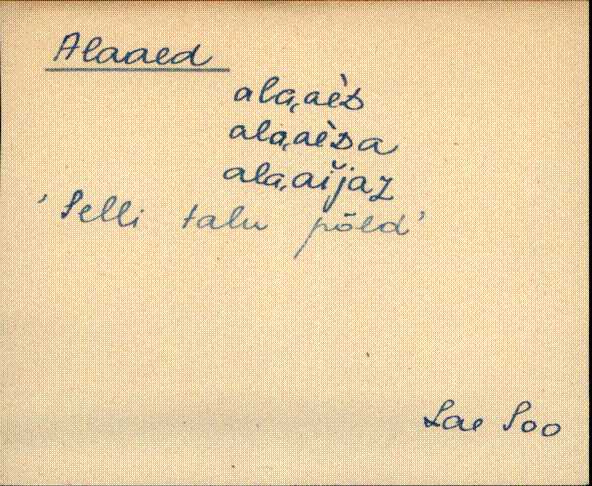 Alaaed
ala,aèᴅ
ala,aèᴅa
ala,aijaz
'Selli talu põld'
Lae Soo